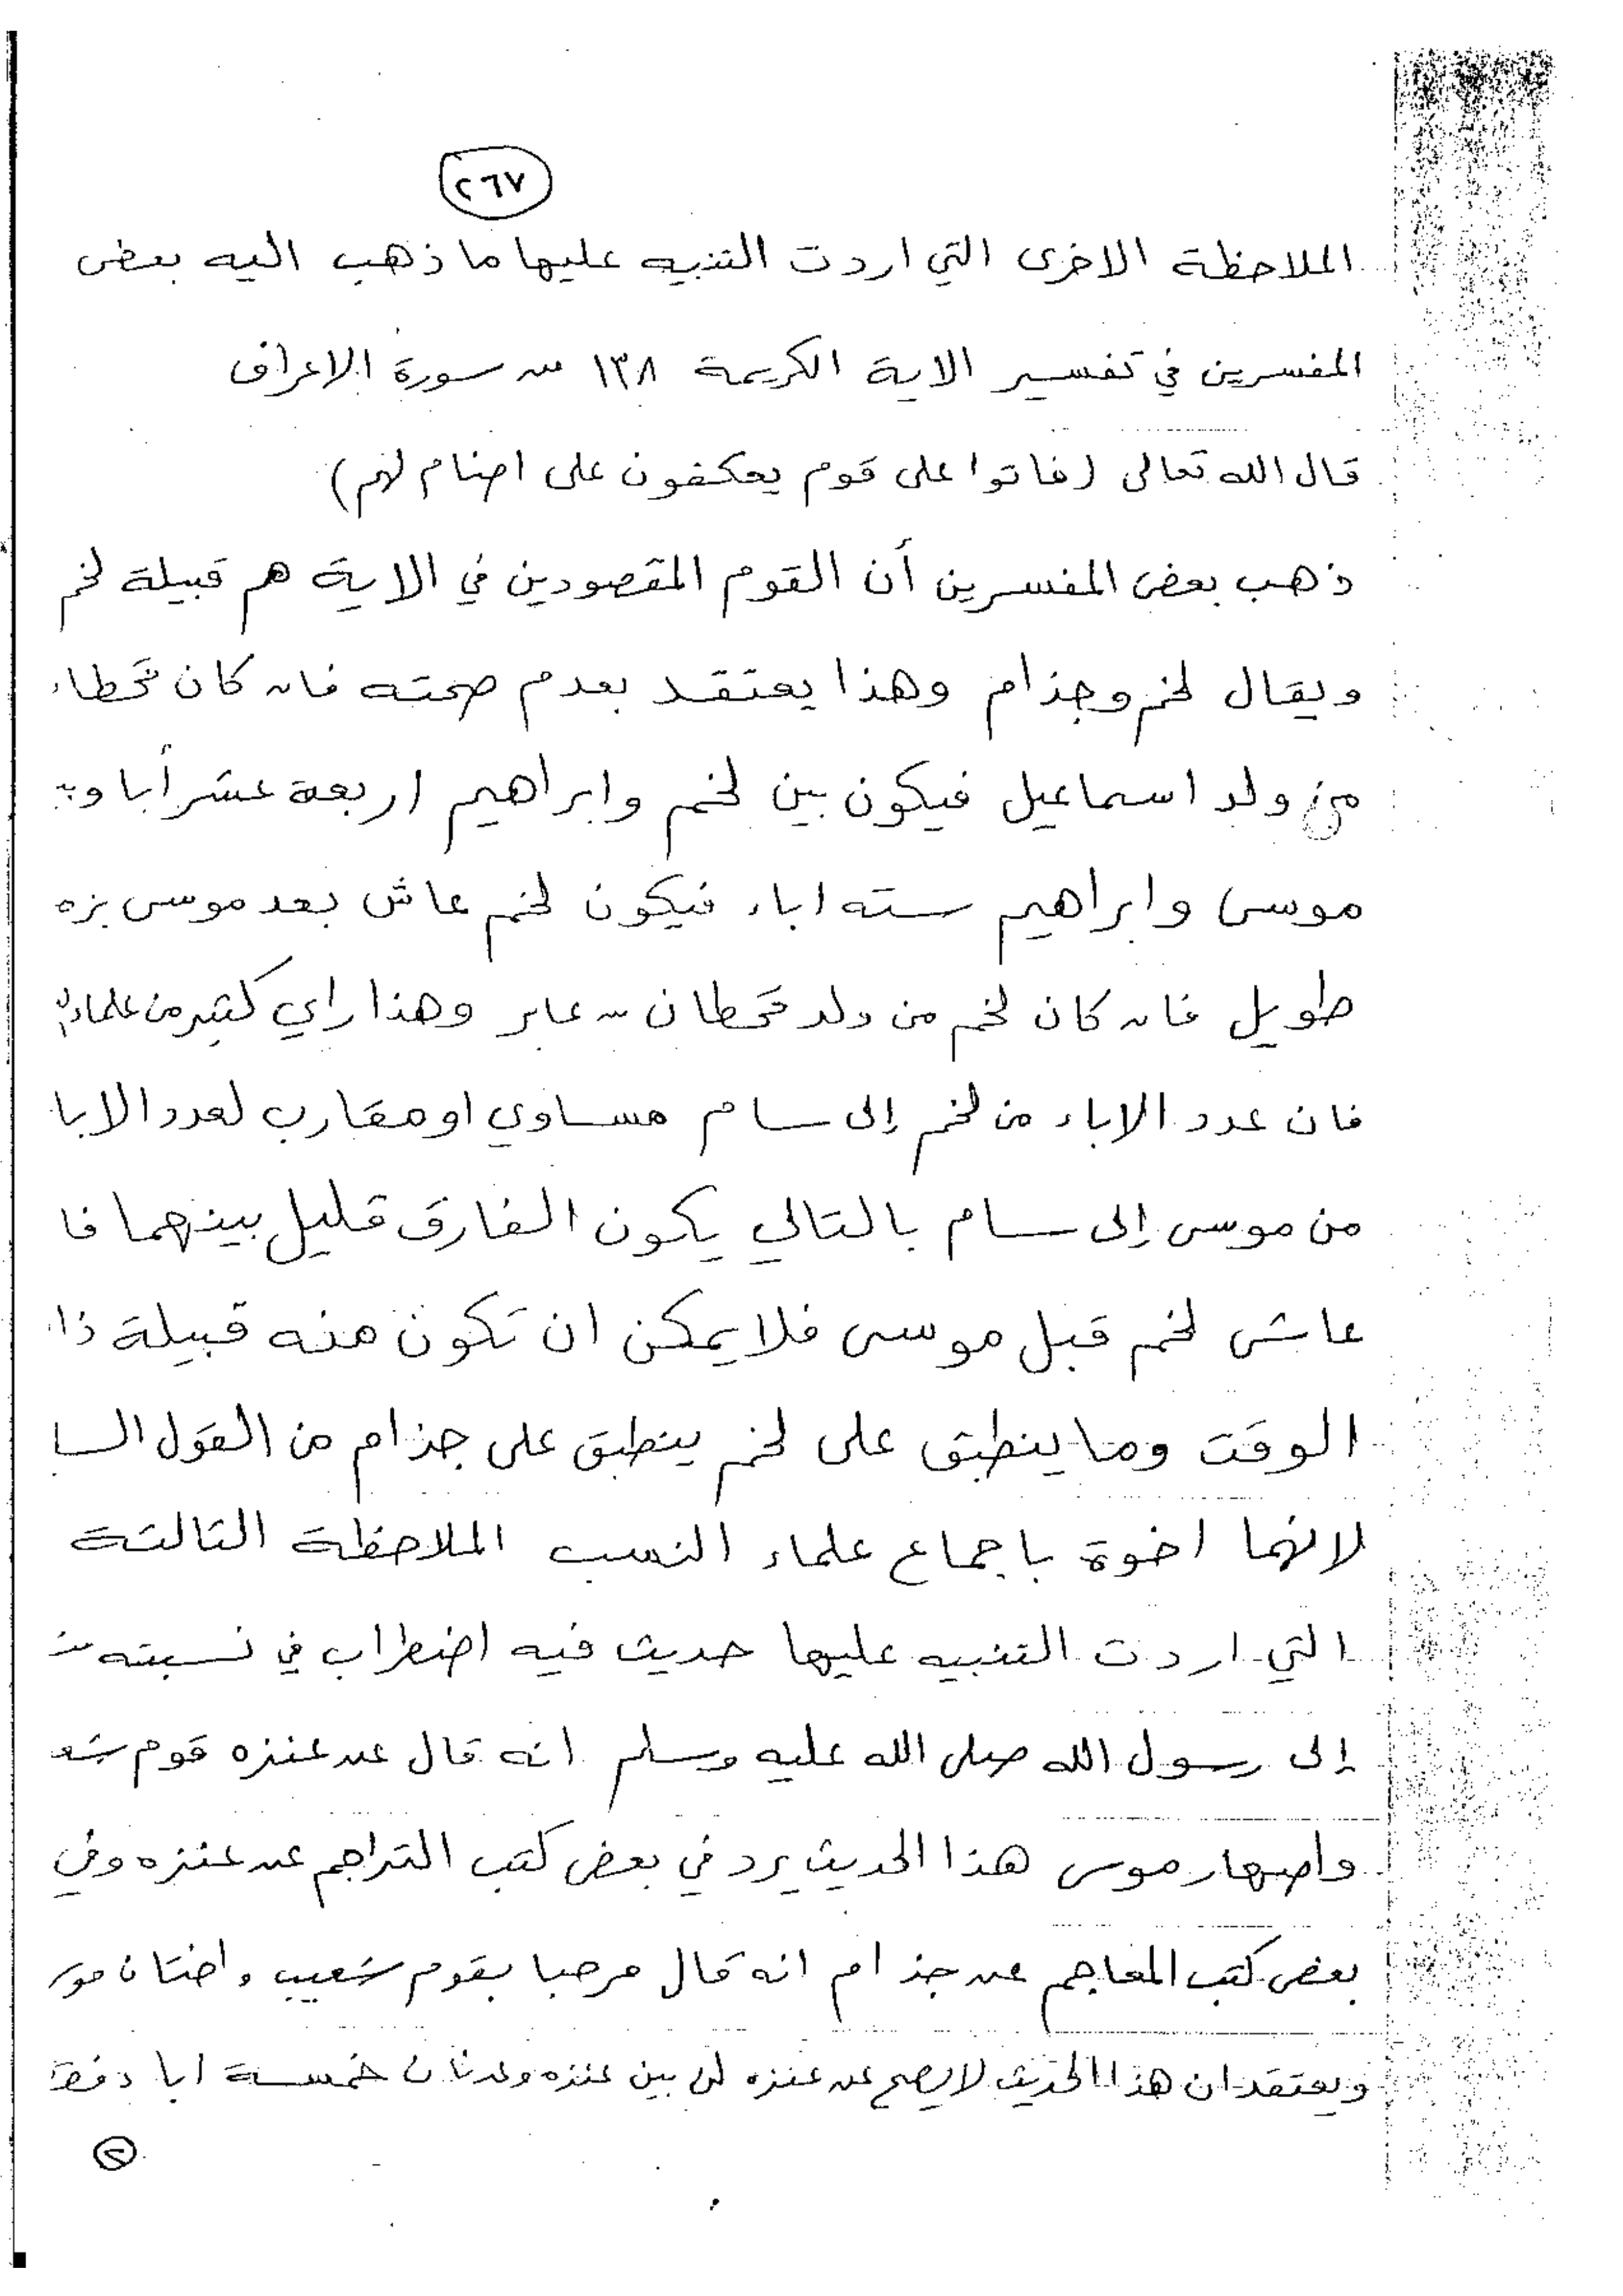 ٢٦٧
الملاحظة الاخرى التي اردت التنبيه عليها ما ذهب اليه بعض
المفسرين في تفسير الاية الكريمة ١٣٨ من سورة الاعراف
قال الله تعالى (فاتوا على قوم يعكفون على اصنام لهم)
ذهب بعض المفسرين أن القوم المقصودين في الاية هم قبيلة لخم
ويقال لخم وجذام وهذا يعتقد بعدم صحته فان كان قحطان
من ولد اسماعيل فيكون بين لخم وابراهيم اربعة عشر أبا وبـ
موسى وابراهيم سته اباء فيكون لخم عاش بعد موسى بزمـ
طويل فان كان لخم من ولد قحطان بن عابر وهذا راي كثير من علماء
فان عدد الاباء من لخم إلى سام مساوي او مقارب لعدد الابا
من موسى إلى سام بالتالي يكون الفارق قليل بينهما فا
عاش لخم قبل موسى فلا يمكن ان تكون منه قبيلة ذا
الوقت وما ينطبق على لخم ينطبق على جذام من القول السا
لانهما اخوة باجماع علماء النسب الملاحظة الثالثة
التي اردت التنبيه عليها حديث فيه اضطراب في نسبته
إلى رسول الله صلى الله عليه وسلم انه قال عن عنزه قوم شعـ
واصهار موسى هذا الحديث يرد في بعض كتب التراجم عن عنزه وفي
بعض كتب المعاجم عن جذام انه قال مرحبا بقوم شعيب واختان موسـ
ويعتقد ان هذا الحديث لا يصح عن عنزه لان بين عنزه وعدنان خمسة ابا فقط
٢